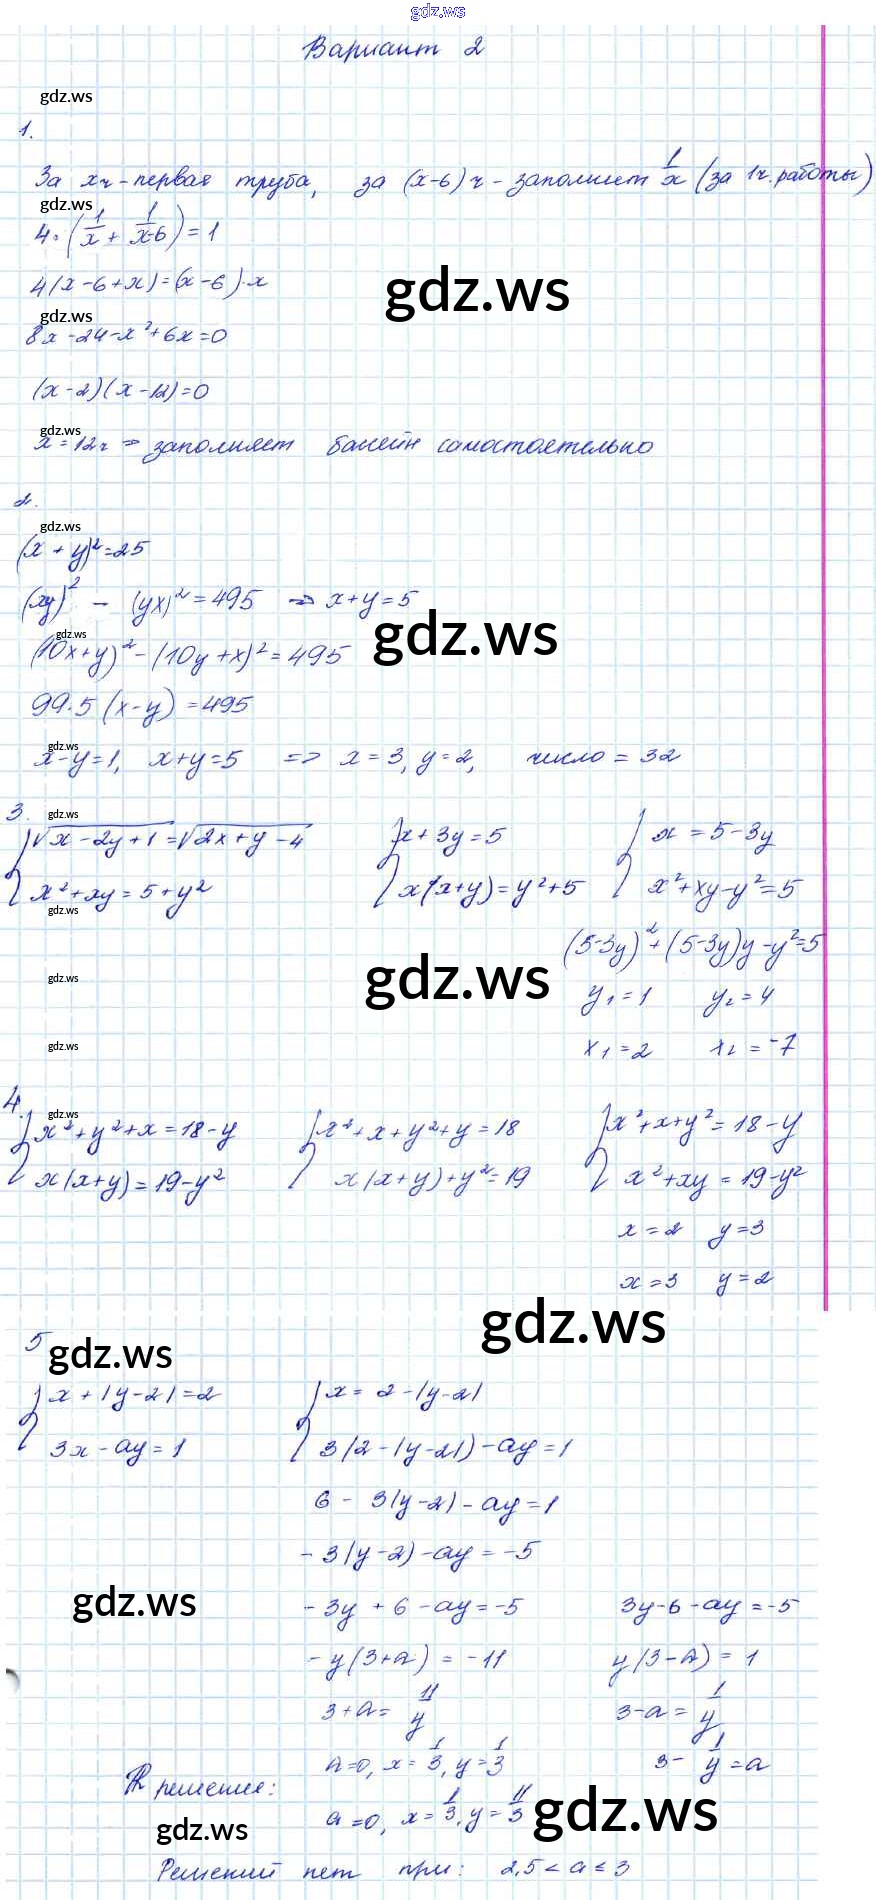 gdz.ws
Вариант 2
gdz.ws
1.
За xч - первая труба, за (x-6) ч - заполнит 1/x (за 1ч. работы)
gdz.ws
4·(1/x + 1/x-6) = 1
4(x-6+x) = (x-6)·x
gdz.ws
gdz.ws
8x-24-x²+6x=0
(x-2)(x-12)=0
gdz.ws
x=12ч => заполняет бассейн самостоятельно
2.
gdz.ws
(x+y)²=25
(xy)² - (yx)² = 495 => x+y=5
gdz.ws
gdz.ws
(10x+y)² - (10y+x)² = 495
99·5 (x-y) = 495
gdz.ws
x-y=1, x+y=5 => x=3, y=2, число = 32
3.
gdz.ws
{√x-2y+1 = √2x+y-4 {x+3y=5 { x=5-3y
x²+xy=5+y² x(x+y)=y²+5 x²+xy-y²=5
gdz.ws
(5-3y)²+(5-3y)y-y²=5
gdz.ws
gdz.ws
y₁=1 y₂=4
gdz.ws
x₁=2 x₂=-7
4.
gdz.ws
{x²+y²+x=18-y {x²+x+y²+y=18 {x²+x+y²=18-y
x(x+y)=19-y² x(x+y)+y²=19 x²+xy=19-y²
x=2 y=3
x=3 y=2
gdz.ws
5
gdz.ws
{x+|y-2|=2 {x=2-|y-2|
3x-ay=1 3(2-|y-2|)-ay=1
6-3(y-2)-ay=1
-3(y-2)-ay=-5
gdz.ws
-3y+6-ay=-5 3y-6-ay=-5
-y(3+a)=-11 y(3-a)=1
3+a=11/y 3-a=1/y
a=0, x=1/3, y=1/3 3-1/y=a
решение:
a=0, x=1/3, y=11/3
gdz.ws
gdz.ws
Решений нет при: 2,5<a≤3